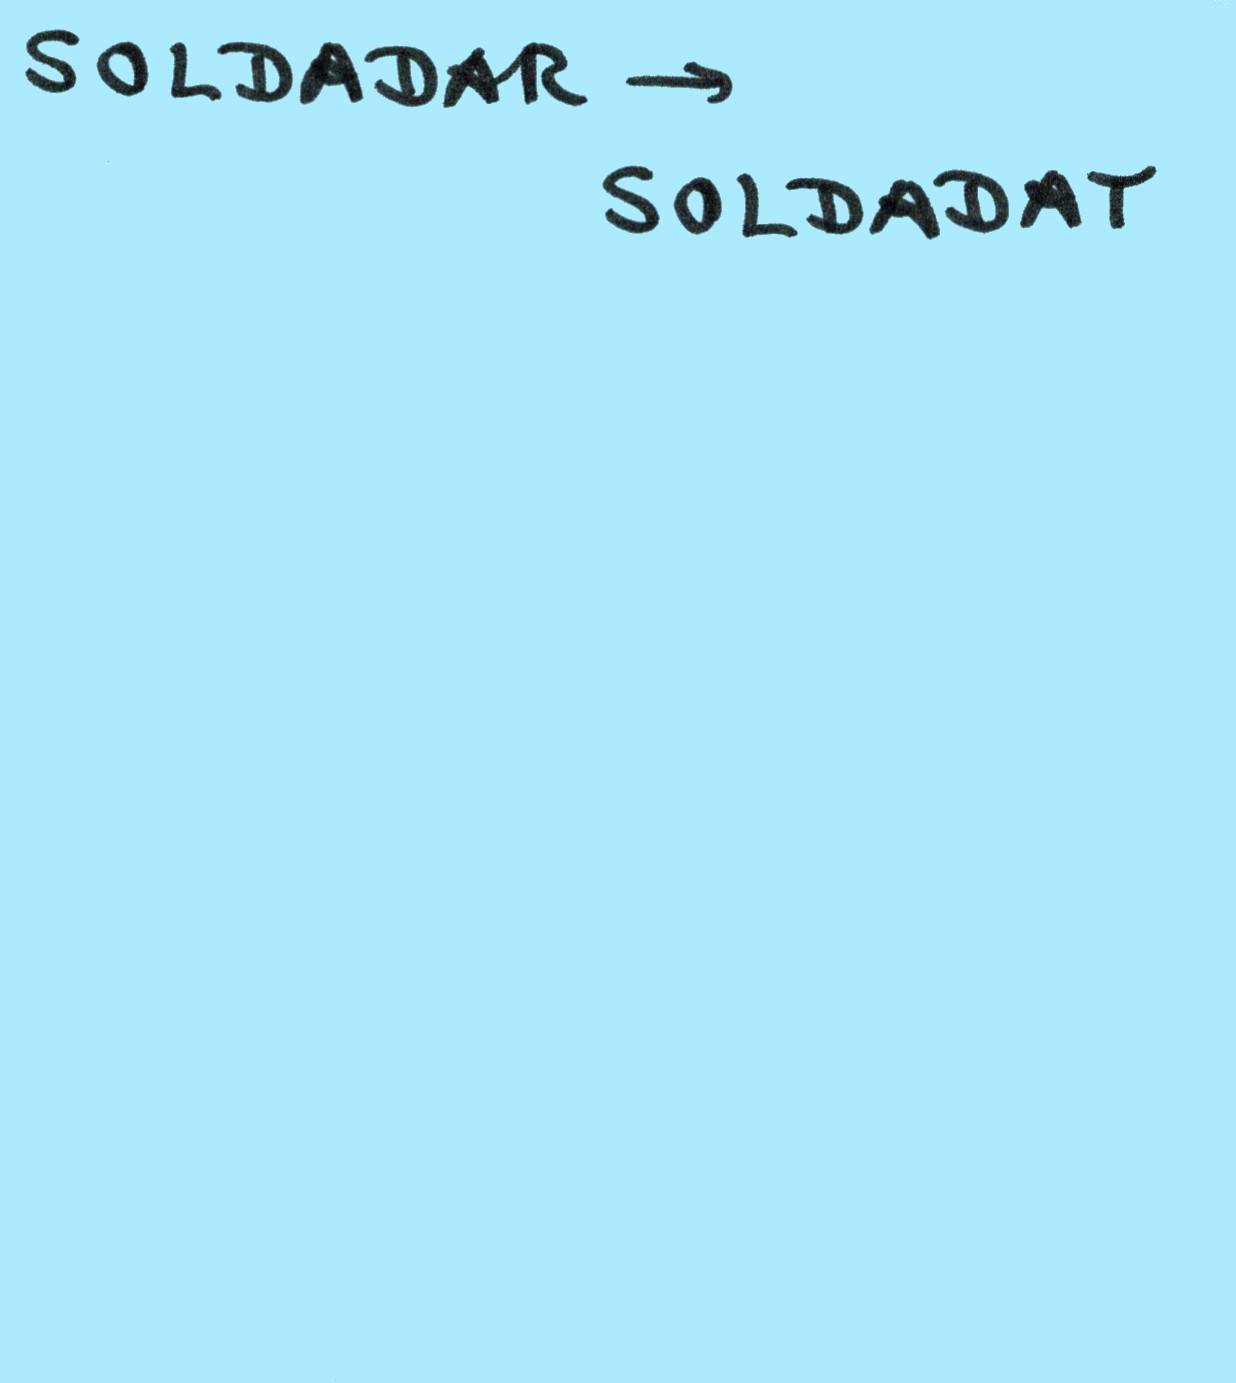 SOLDADAR →
SOLDADAT